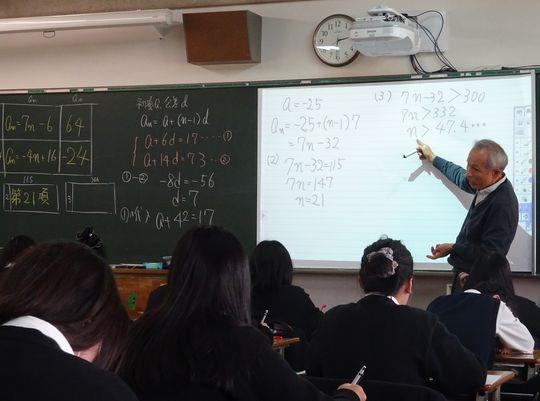 an
an
an=7n-6
64
an=-4n+16
-24
115
第21項
初項a, 公差d
an = a+(n-1)d
a+6d=17……①
a+14d=73…②
①-②
-8d=-56
d=7
a+42=17
a=-25
an=-25+(n-1)7
=7n-32
(2) 7n-32=115
7n=147
n=21
(3) 7n-32>300
7n>332
n>47.4…